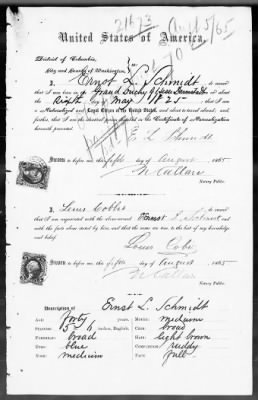 21673
United States of America.
District of Columbia,
City and County of Washington,
I, Ernst L. Schmidt do swear
that I was born in Grand Duchy of Hesse Darmstadt on
the Eighth day May 1825, that I am
a Naturalized and Loyal Citizen of the United States, and about to travel abroad; and
further, that I am the identical person described in the Certificate of Naturalization
herewith presented.
E. L. Schmidt
Sworn to this fifth day of August 1865
N. Callan
Notary Public.
I, Louis do swear
that I am acquainted with the above-named Ernest L. Schmidt
and with the facts above stated by him, and that the same are true to the best of my knowledge
and belief.
Louis
Sworn to this fifth day of August 1865
N. Callan
Notary Public.
Description of Ernst L. Schmidt
Age: forty years. Mouth: medium
Stature: 5 6 inches, English. Chin: broad
Forehead: broad Hair: light brown
Eyes: blue Complexion: ruddy
Nose: medium Face: full